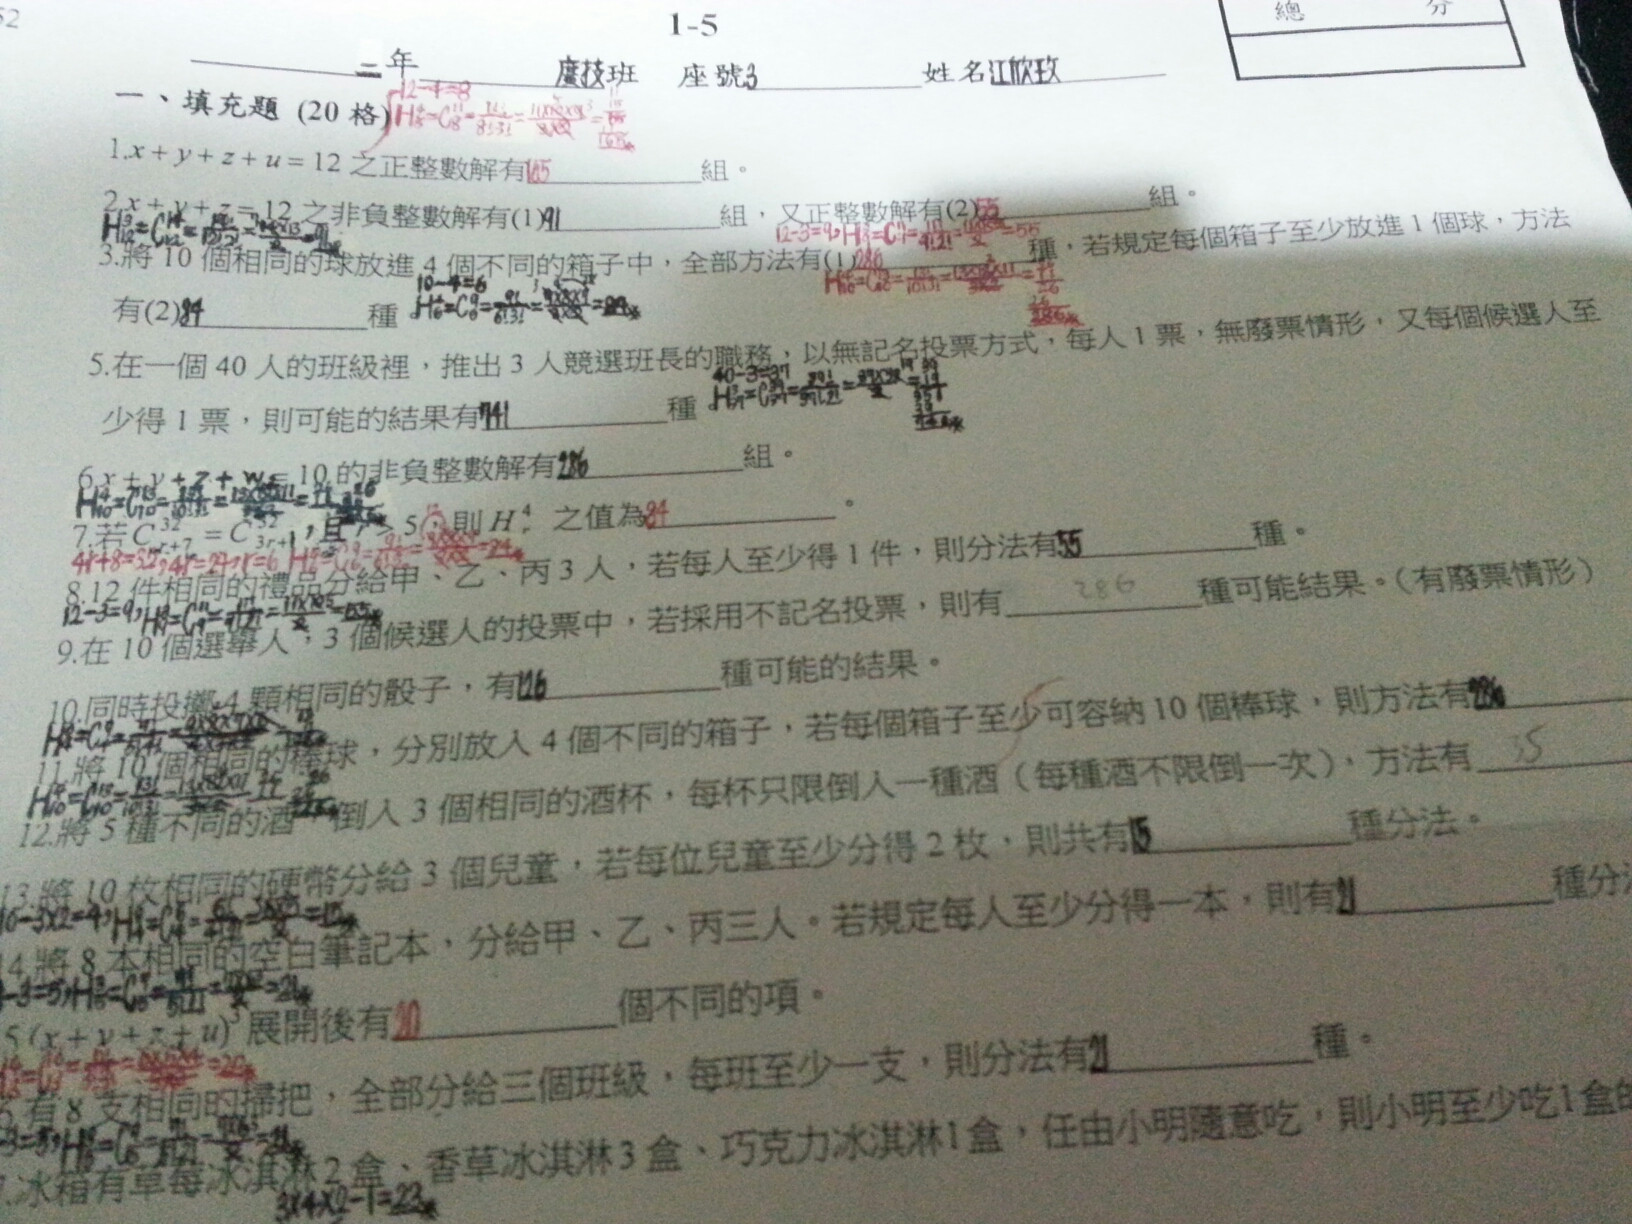 52
1-5
總 分
二年 廣技班 座號3 姓名江欣玫
一、填充題 (20 格)
12-4=8
1.x + y + z + u = 12 之正整數解有165 組。
2.x + y + z = 12 之非負整數解有(1)91 組，又正整數解有(2)55 組。
3.將 10 個相同的球放進 4 個不同的箱子中，全部方法有(1)286 種，若規定每個箱子至少放進 1 個球，方法
10-4=6
有(2)84 種
5.在一個 40 人的班級裡，推出 3 人競選班長的職務，以無記名投票方式，每人 1 票，無廢票情形，又每個候選人至
40-3=37
少得 1 票，則可能的結果有741 種
6.x + y + z + w = 10 的非負整數解有286 組。
7.若 C³²ᵣ₊₇ = C³²₃ᵣ₊₁，且 r > 5，則 H⁴ᵣ 之值為84 。
4r+8=32, 4r=24, r=6
8.12 件相同的禮品分給甲、乙、丙 3 人，若每人至少得 1 件，則分法有55 種。
12-3=9,
9.在 10 個選舉人，3 個候選人的投票中，若採用不記名投票，則有 286 種可能結果。（有廢票情形）
10.同時投擲 4 顆相同的骰子，有126 種可能的結果。
11.將 10 個相同的棒球，分別放入 4 個不同的箱子，若每個箱子至少可容納 10 個棒球，則方法有286
12.將 5 種不同的酒 倒入 3 個相同的酒杯，每杯只限倒入一種酒（每種酒不限倒一次），方法有 35
13.將 10 枚相同的硬幣分給 3 個兒童，若每位兒童至少分得 2 枚，則共有15 種分法。
10-3x2=4,
14.將 8 本相同的空白筆記本，分給甲、乙、丙三人。若規定每人至少分得一本，則有21 種分法
-3=5,
5.(x + y + z + u)³ 展開後有20 個不同的項。
6.有 8 支相同的掃把，全部分給三個班級，每班至少一支，則分法有21 種。
-3=5,
7.冰箱有草莓冰淇淋 2 盒、香草冰淇淋 3 盒、巧克力冰淇淋 1 盒，任由小明隨意吃，則小明至少吃 1 盒的
3x4x2-1=23